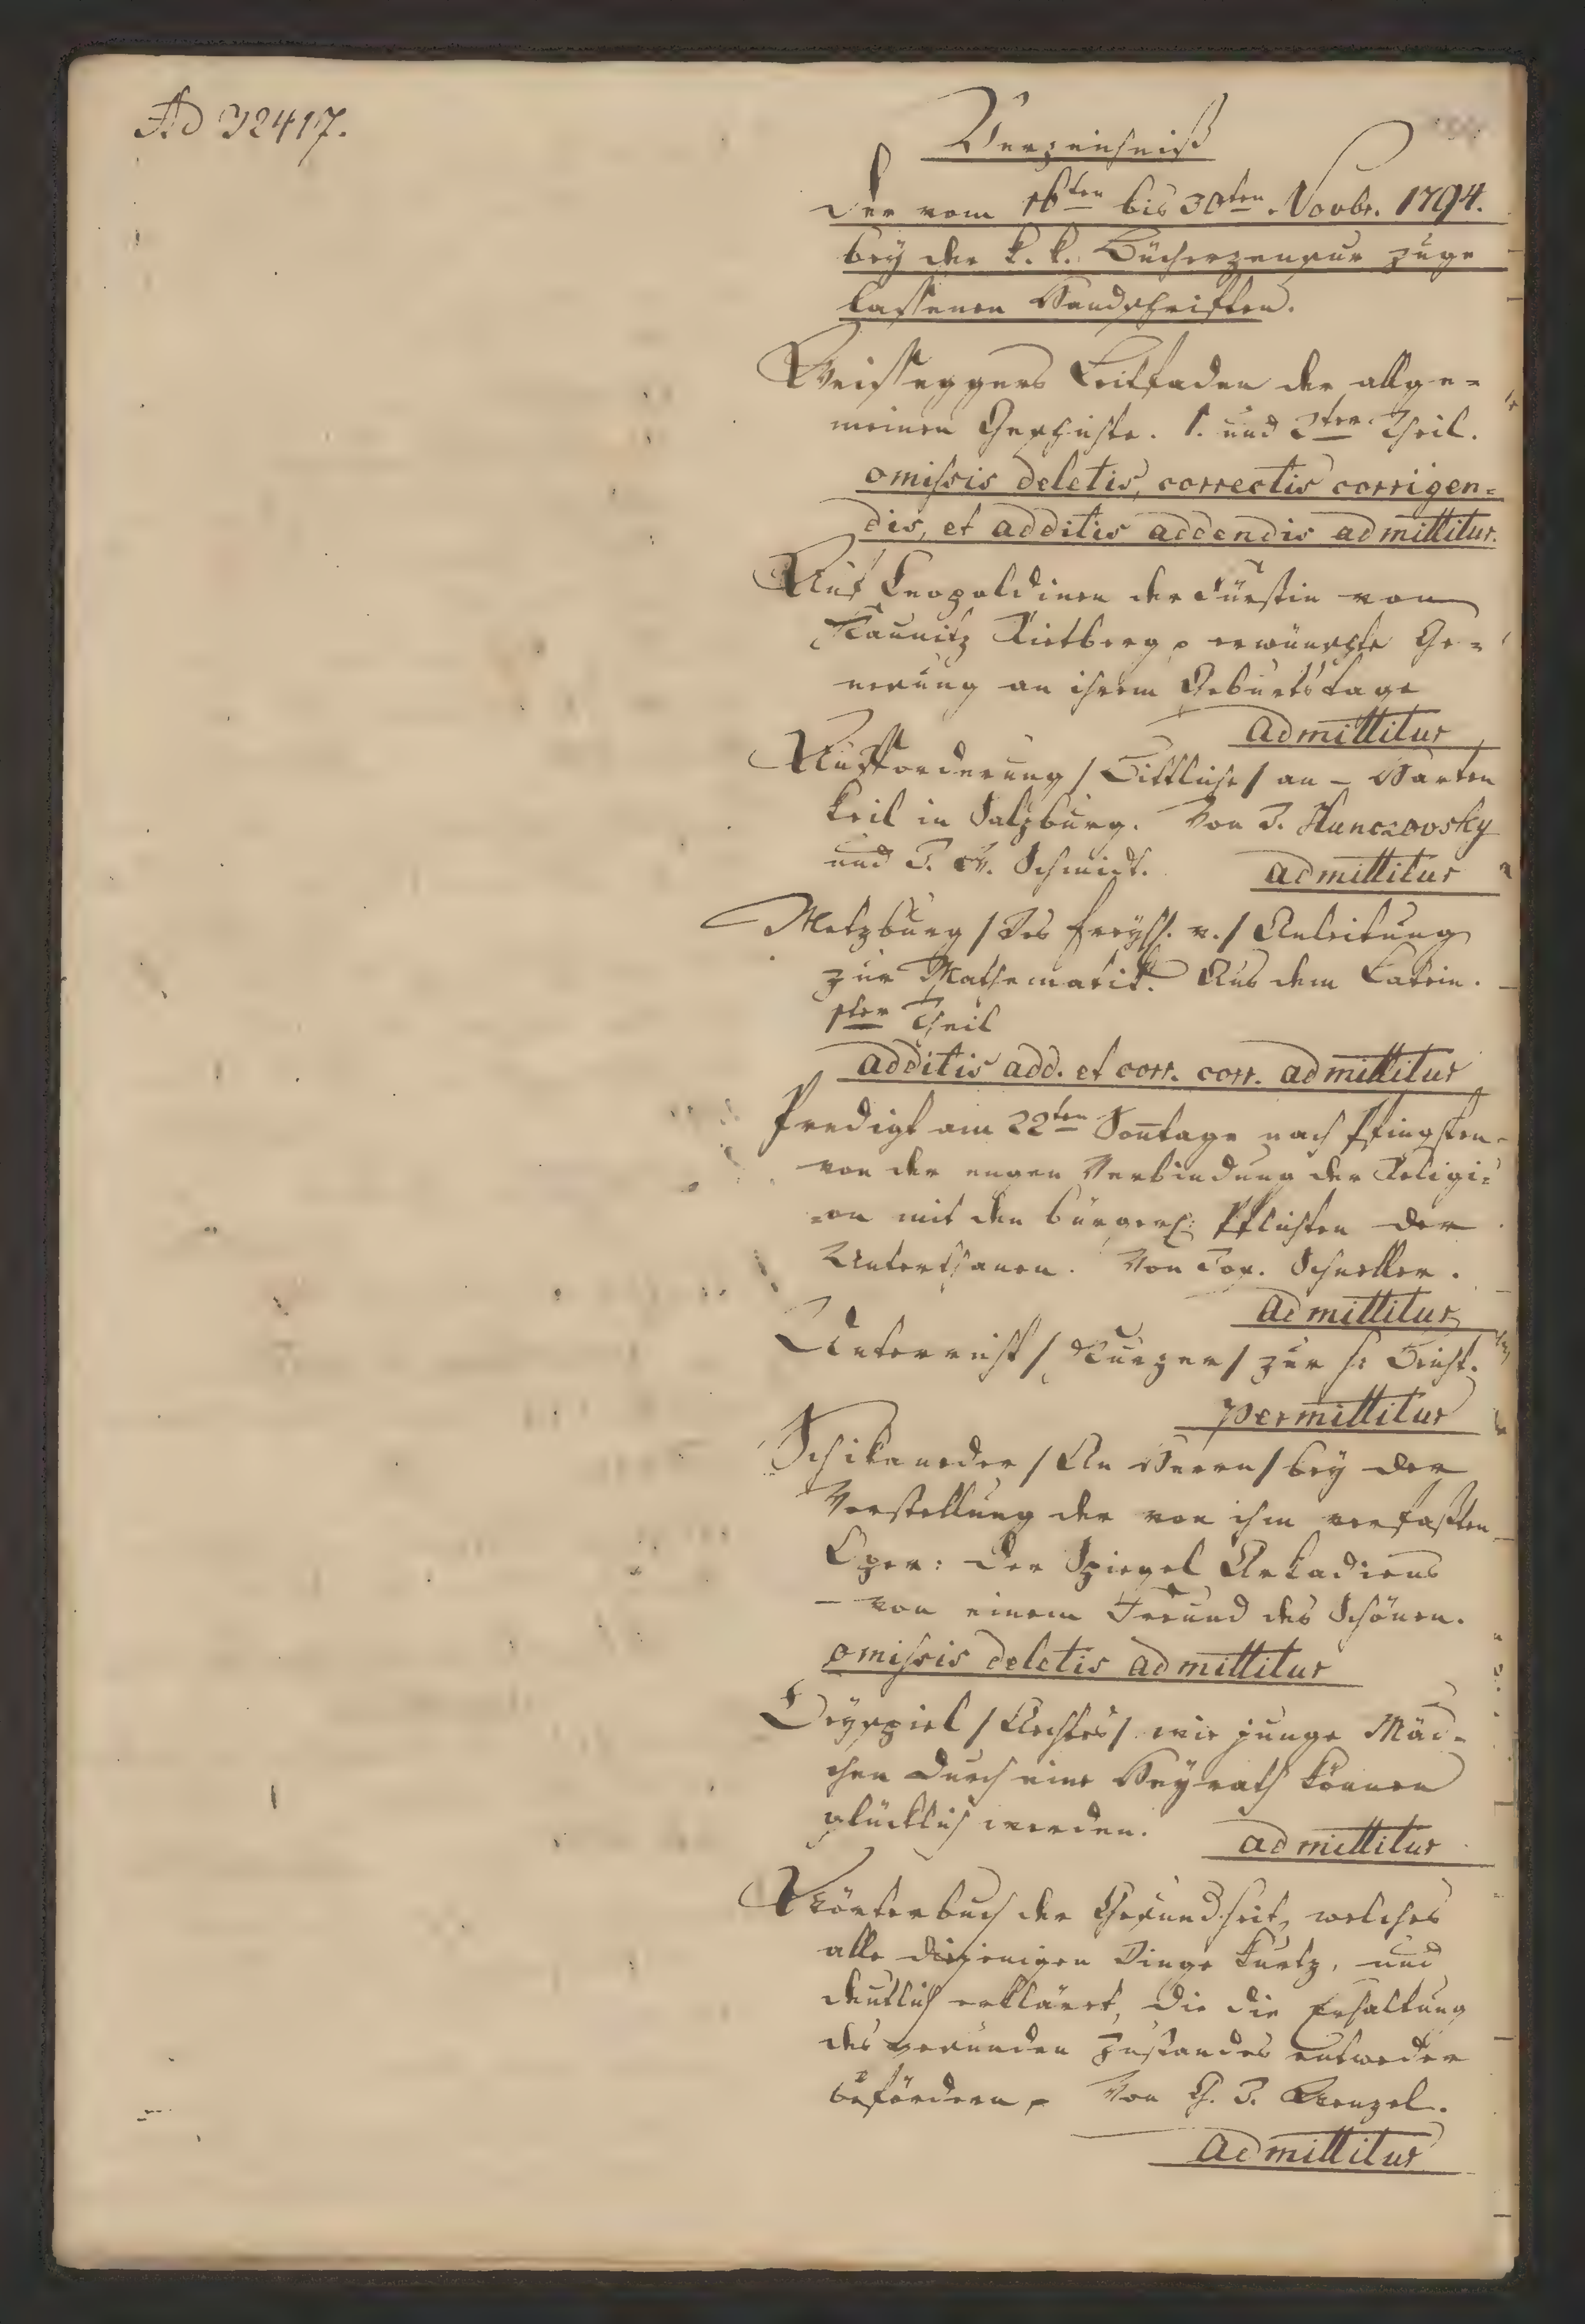 Ad 32417.
Verzeichniß
der vom 16ten bis 30ten Novbr. 1794.
bey der k. k. Bücherzensur zuge
lassenen Handschriften.
Weisseggers Leitfaden der allge=
meinen Geschichte. 1. und 2ter Theil.
omissis deletis, correctis corrigen=
dis, et additis addendis admittitur.
Auf Leopoldinen der Fürstin von
Kaunitz Rietberg erwünschte Ge=
nesung an ihrem Geburtstage
admittitur
Aufforderung / Bittliche / an – Harten
keil in Salzburg. Von J. Hunczovsky
und J. A. Schmidt. admittitur
Metzburg / Des Freyh. v. / Anleitung
zur Mathematik. Aus dem Latein.
1ter Theil
additis add. et corr. corr. admittitur
Predigt am 22ten Sontage nach Pfingsten
von der engen Verbindung der Religi=
=on mit den bürgerl: Pflichten der
Unterthanen. Von Jos. Schneller.
admittitur
Unterricht / Kurzer / zur h: Beicht.
permittitur
Schikaneder / An Herrn / bey der
Vorstellung der von ihm verfaßten
Oper: der Spiegel Arkadiens
– von einem Freund des Schönen.
omissis deletis admittitur
Beyspiel / Aechtes / wie junge Mäd=
chen durch eine Heyrath können
glücklich werden. admittitur
Wörterbuch der Gesundheit, welches
alle diejenigen Dinge kurtz, und
deutlich erkläret, die die Erhaltung
des gesunden Zustandes entweder
befördern Von G. J. Wenzel.
admittitur